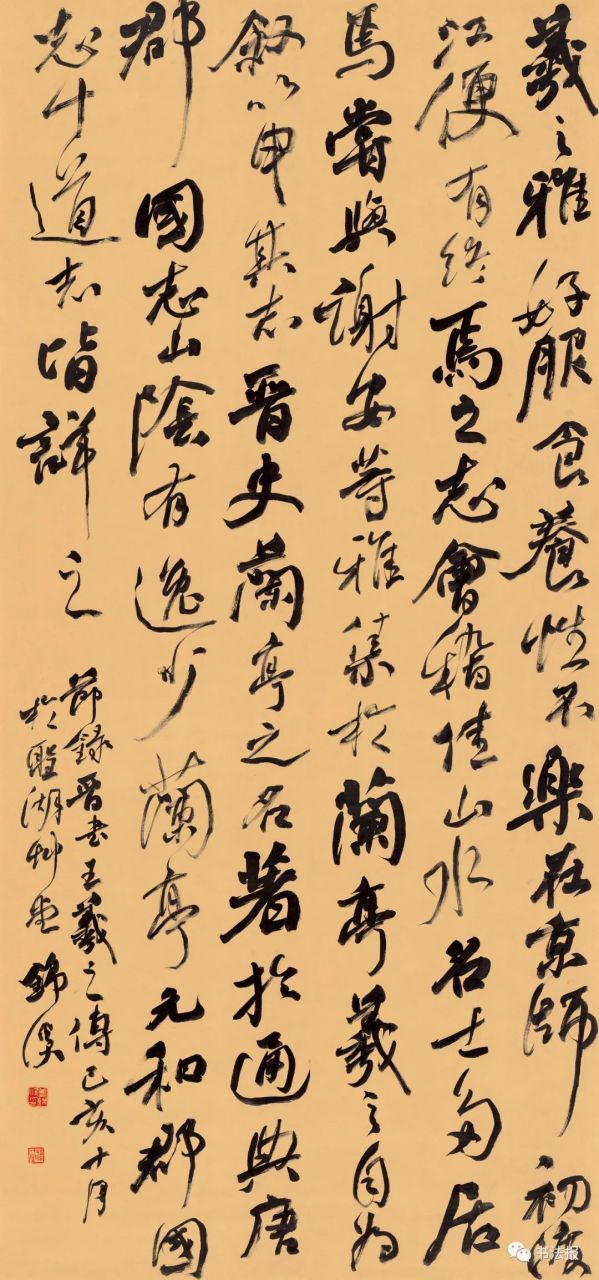 羲之雅好服食養性不樂在京師初渡
江便有終焉之志會稽佳山水名士多居
焉嘗與謝安等雅集於蘭亭羲之自為
敘以申其志晉史蘭亭之名著於通典唐
郡國志山陰有逸少蘭亭元和郡國
志十道志皆詳之
節錄晉書王羲之傳己亥十月
於聖湖艸堂錦溪
书法报